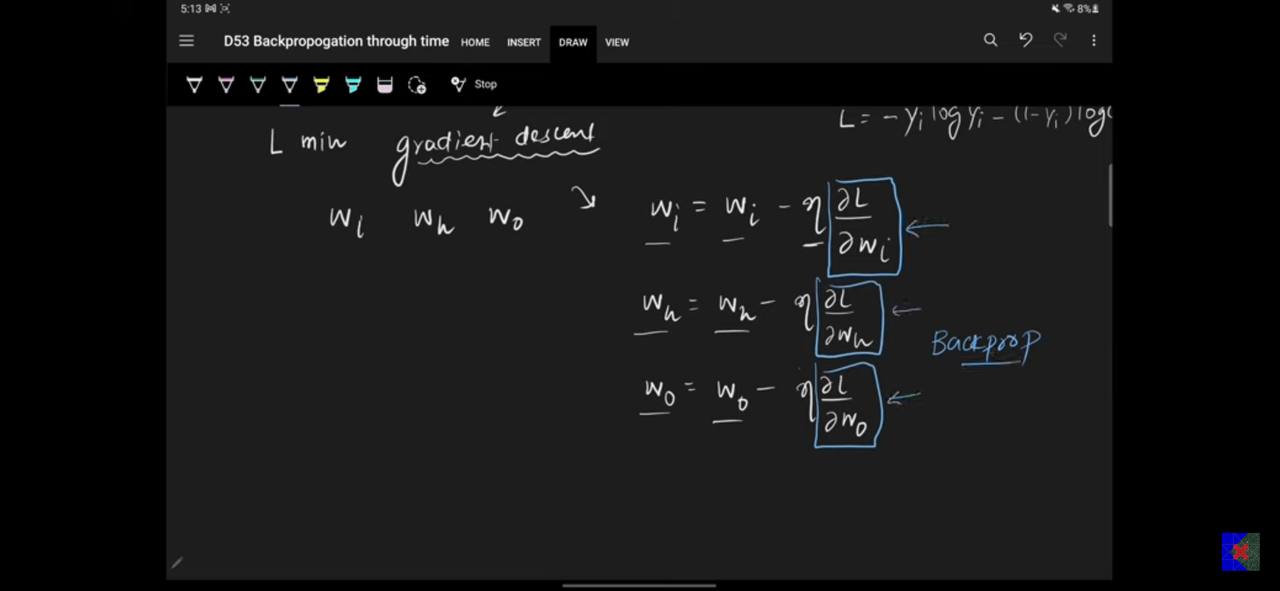 5:13 8%
D53 Backpropogation through time HOME INSERT DRAW VIEW
Stop
L = - Yi log Yi - (1-Yi) log
L min gradient descent
Wi Wh Wo
Wi = Wi - η ∂L/∂Wi
Wh = Wh - η ∂L/∂Wh
Backprop
Wo = Wo - η ∂L/∂Wo